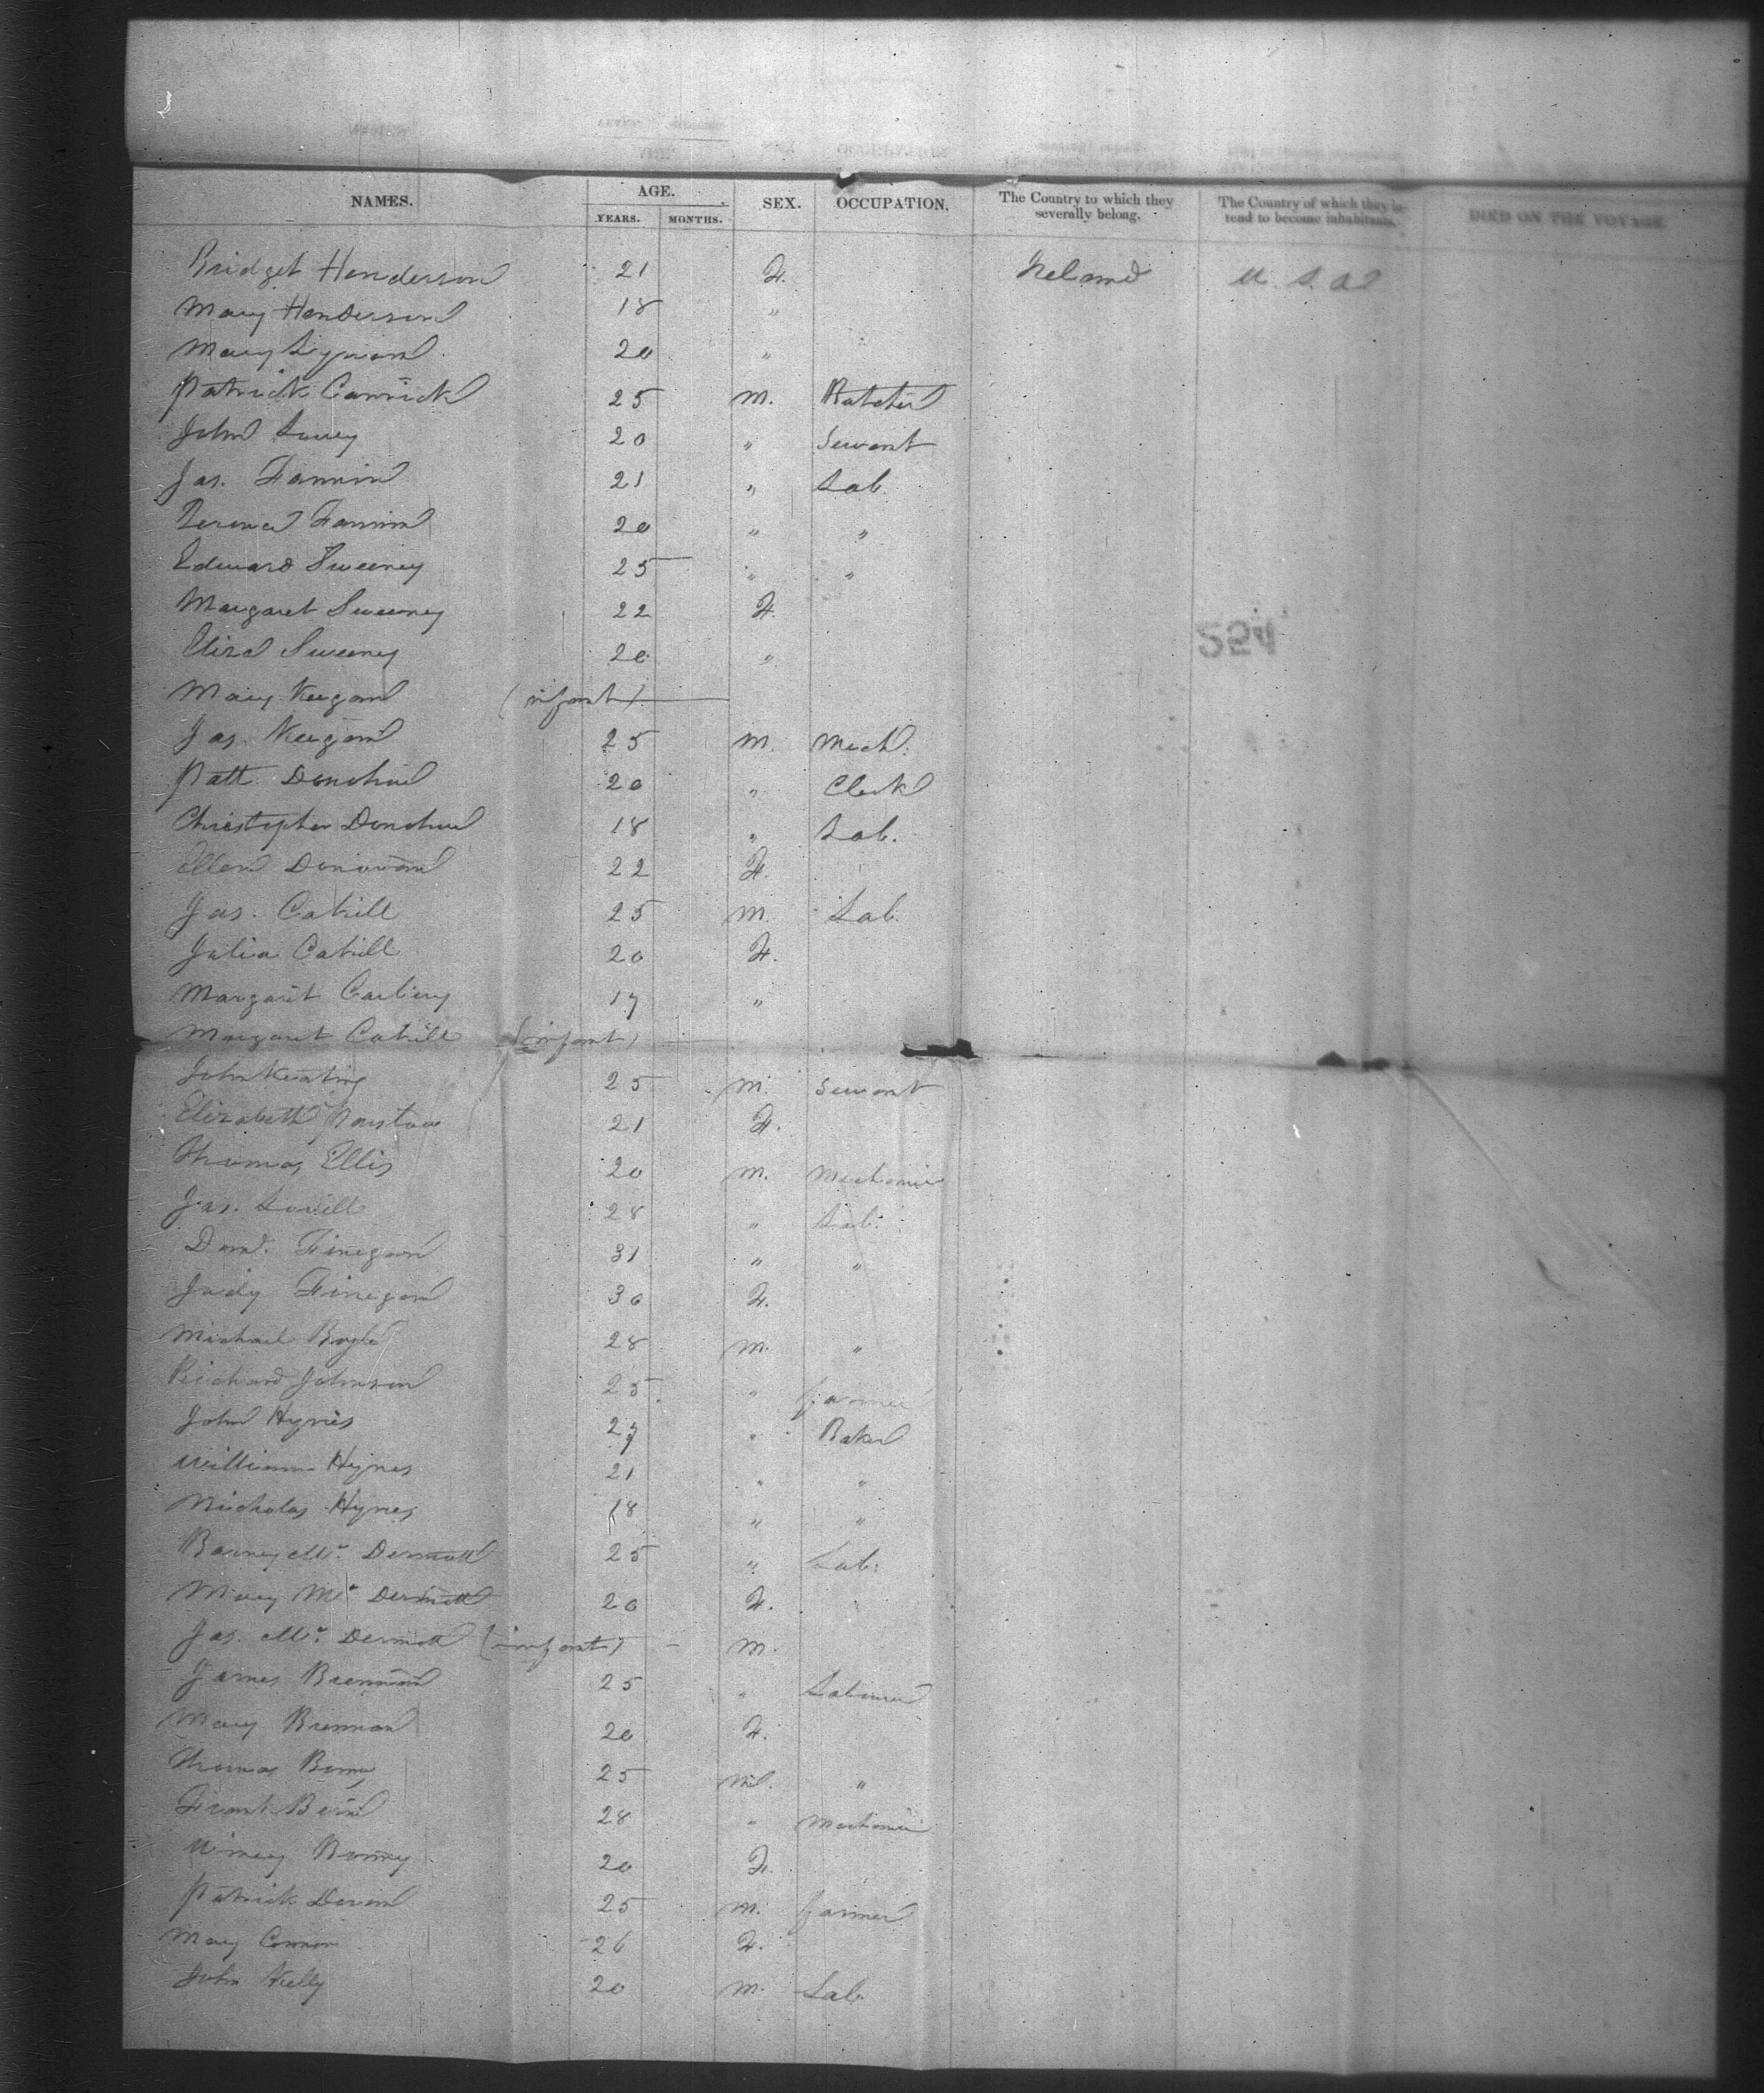 NAMES. AGE. SEX. OCCUPATION. The Country to which they severally belong. The Country of which they intend to become inhabitants. DIED ON THE VOYAGE
YEARS. MONTHS.
Bridget Henderson 21 F. Ireland U. S. A
Mary Henderson 18 "
Mary 20 "
Patrick Carrick 25 M. Butcher
John 20 " Servant
Jas. Fannin 21 " Lab.
Terence Fannin 20 " "
Edward Sweeney 25 " "
Margaret Sweeney 22 F.
Eliza Sweeney 20 "
254
Mary Keegan (infant)
Jas. Keegan 25 M. Mech.
Patt Donohue 20 " Clerk
Christopher Donohue 18 " Lab.
Ellen Donovan 22 F.
Jas. Cahill 25 M. Lab.
Julia Cahill 20 F.
Margaret Carbery 17 "
Margaret Cahill (infant)
John Keating 25 M. Servant
Elizabeth 21 F.
Thomas Ellis 20 M. Mechanic
Jas. 28 " Lab.
Finegan 31 " "
Judy Finegan 30 F.
Michael Boyle 28 M. "
Richard Johnson 25 " farmer
John Hynes 27 " Baker
William Hynes 21 " "
Nicholas Hynes 18 " "
Barney Mc. Dermott 25 " Lab.
Mary Mc. Dermott 20 F.
Jas. Mc. Dermott (infant) - M.
James Brennan 25 " Labourer
Mary Brennan 20 F.
Thomas 25 M. "
Frank 28 " Mechanic
Winney 20 F.
Patrick 25 M. farmer
Mary Connor 26 F.
John Kelly 20 M. Lab.